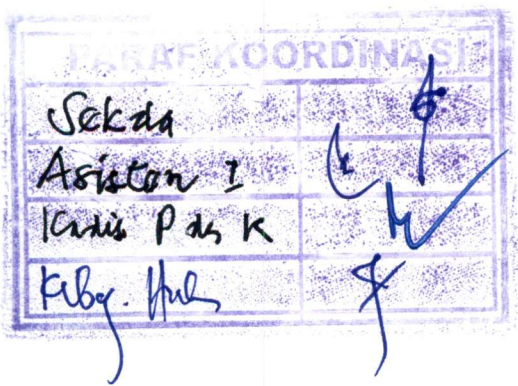 PARAF KOORDINASI
Sekda
Asisten I
Kadis P dan K
Kabag. Huk